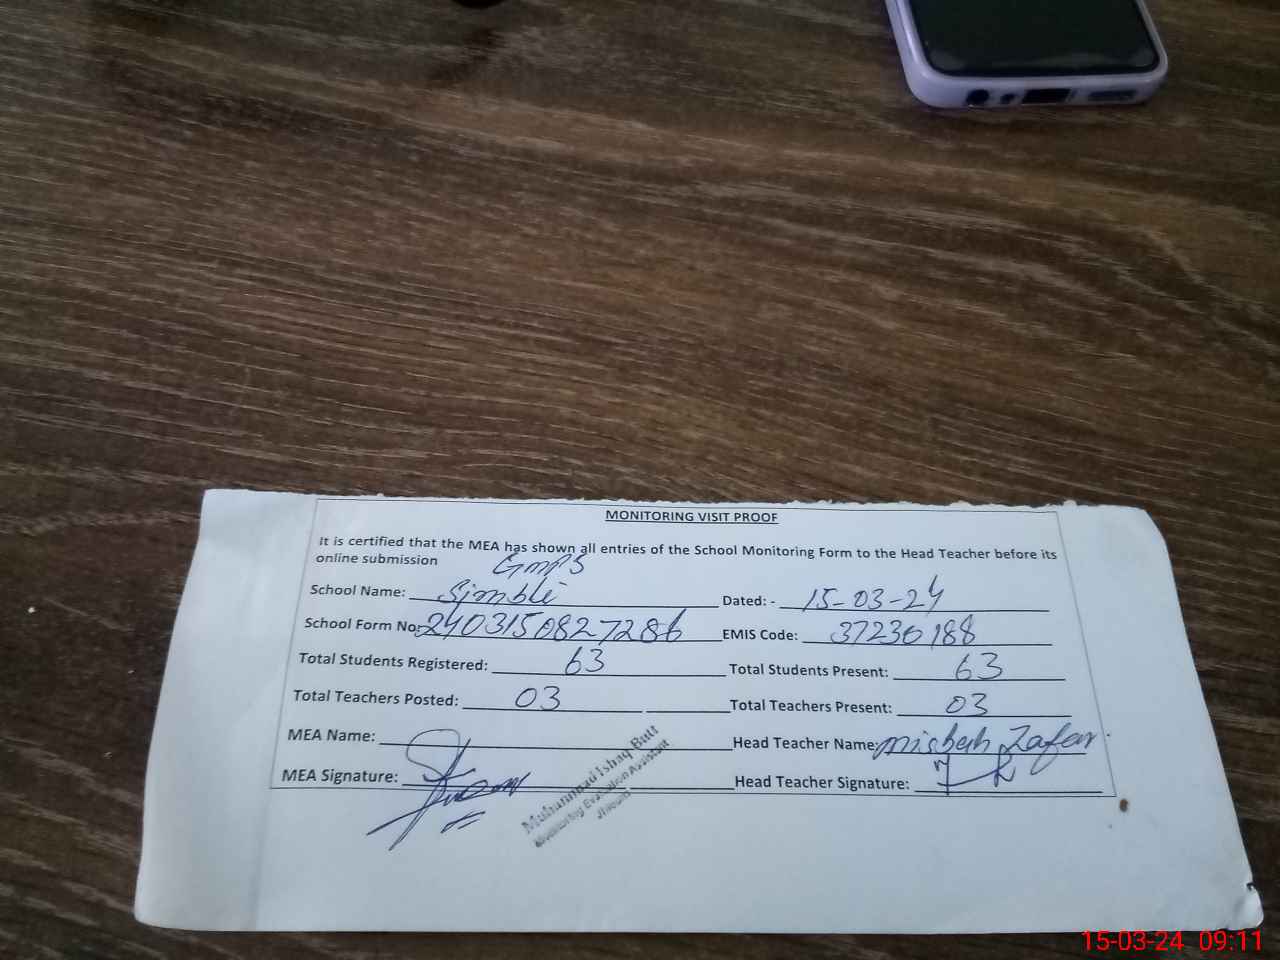 MONITORING VISIT PROOF
It is certified that the MEA has shown all entries of the School Monitoring Form to the Head Teacher before its
online submission
GMPS
School Name: Simbli Dated: - 15-03-24
School Form No: 2403150827286 EMIS Code: 37230188
Total Students Registered: 63 Total Students Present: 63
Total Teachers Posted: 03 Total Teachers Present: 03
MEA Name: Head Teacher Name: Misbah Zafar
MEA Signature: Head Teacher Signature:
Muhammad Ishaq Butt
Monitoring Evaluation Assistant
Jhelum
15-03-24 09:11